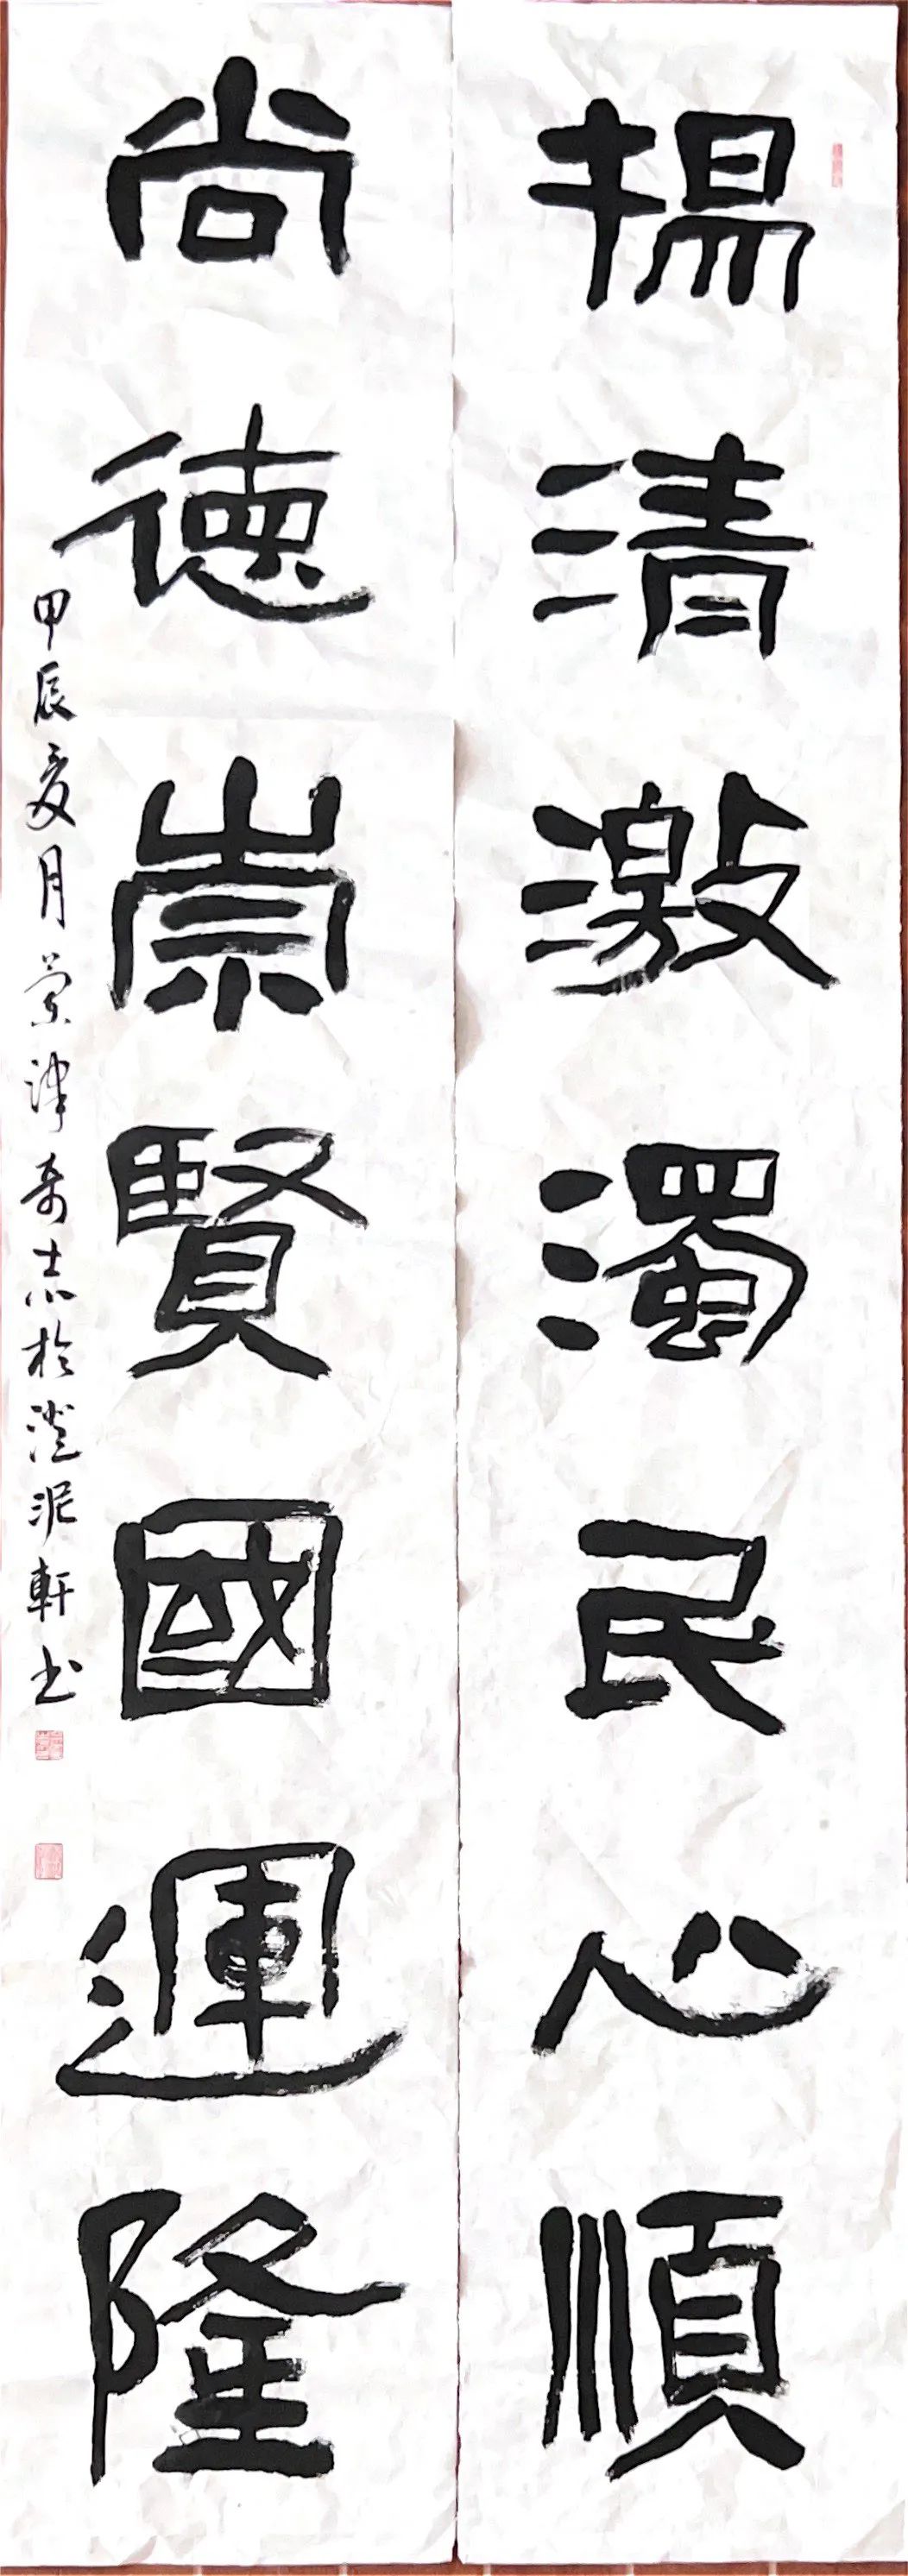 揚清激濁民心順
尚德崇賢國運隆
甲辰夏月榮津奇志於澄泥軒书